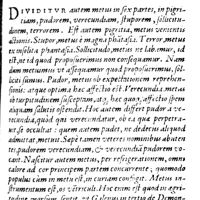 DIVIDITVR autem metus in sex partes, in pigri-
tiam, pudorem, verecundiam, stuporem, sollicitu-
dinem, terrorem. Est autem pigritia, metus venientis
Stupor, metus è magna phantasia. Terror, metus
ex insolita phantasia. Sollicitudo, metus ne labamur, id
est, ne id quod proposuerimus non consequamur. Nam
dum metuimus vt assequamur quod proposuerimus, sol-
liciti sumus. Pudor, metus ob expectationem reprehensio-
nis: atque optima hec affectio est. Verecundia metus
ob turpitudinem susceptam, at neque hoc, quoq; affectio spem
aliquam salutis ostendit. Hoc autem differt pudor à ve-
recundia, quòd qui verecundatur, ob ea quæ perpetra-
uit, se occultat: quem autem pudet, ne dedecus aliquod
admittat, metuit. Sæpe tamen veteres nominibus abuten-
tes, pudorem verecundiam, & verecundiam pudorem
vocant. Nascitur autem metus, per refrigerationem, omni
calore ad cor præcipitem partem concurrente, quomodo
populus cùm in metu est, in curiam confugit. Mœroris in-
strumentum est, os ventriculi. Hoc enim est quod in ægri-
Galenus in tertio de Demon-